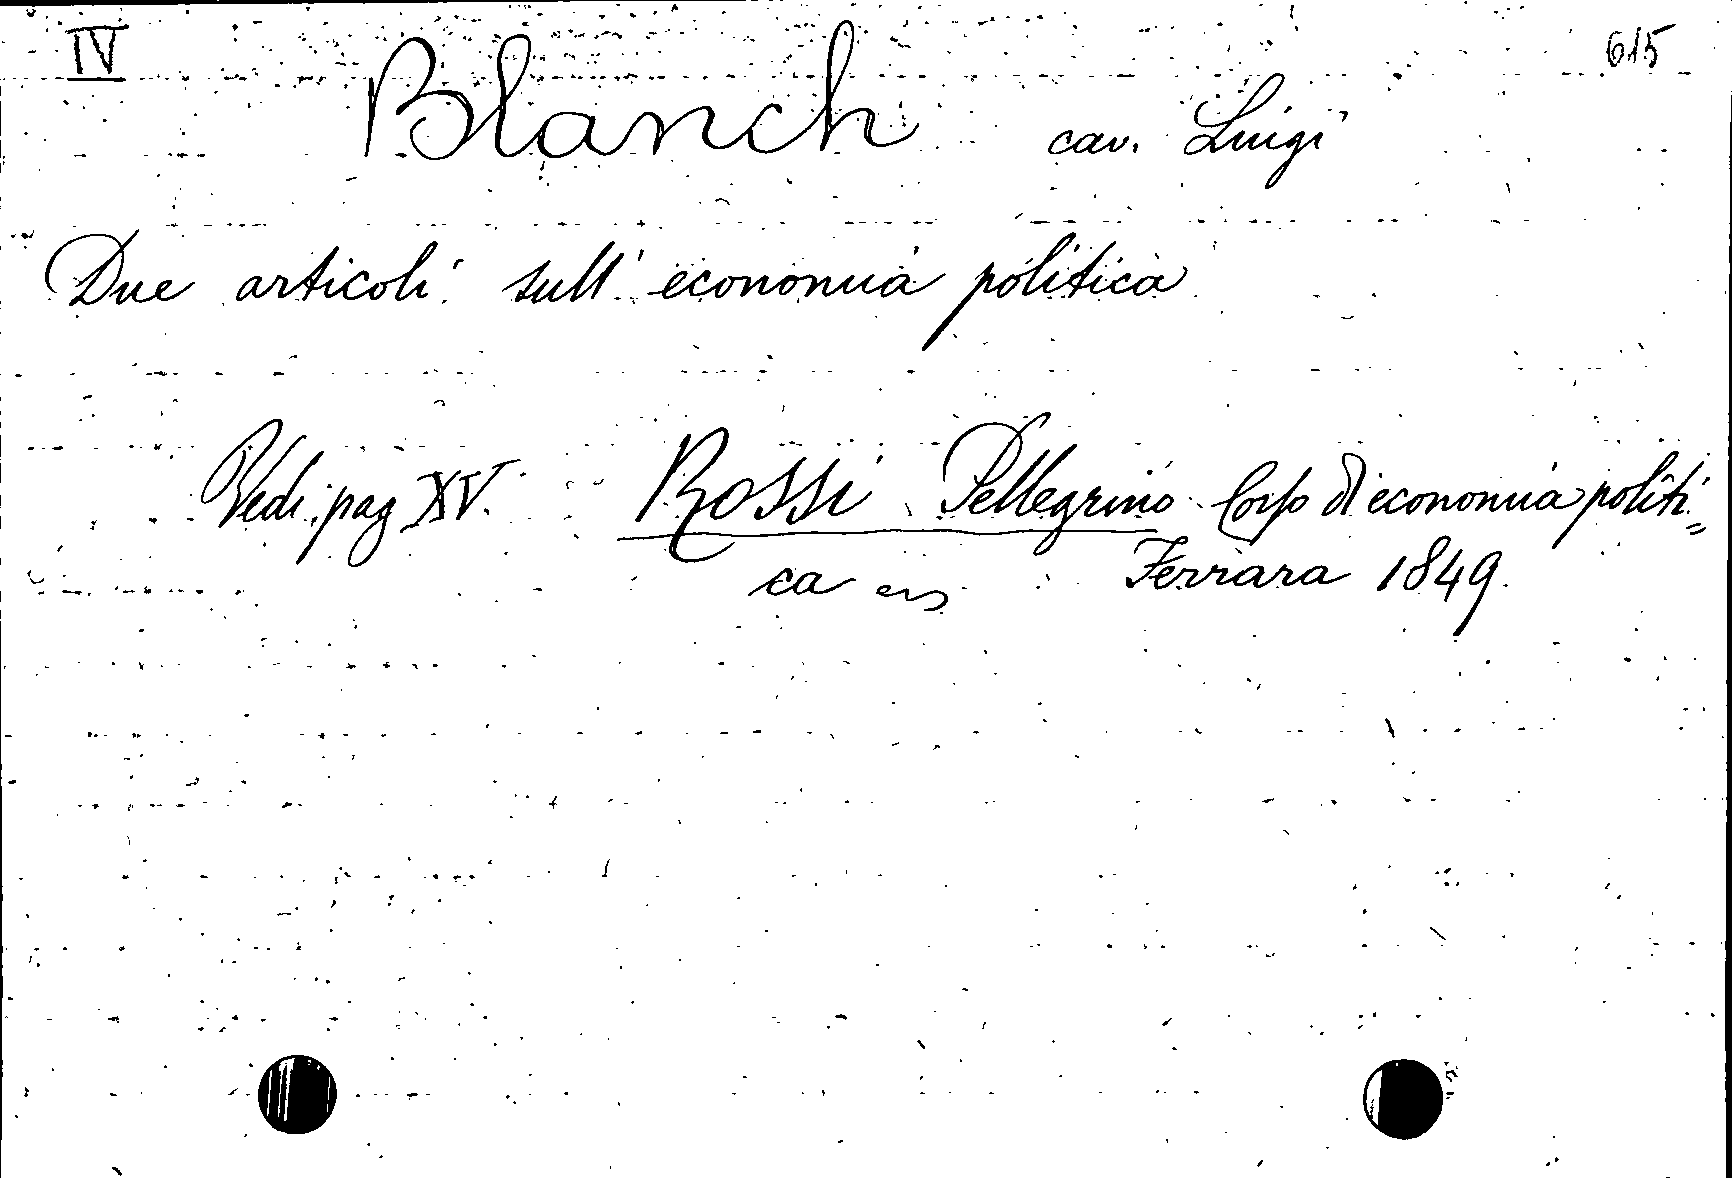 IV 615
Blanch cav. Luigi
Due articoli sull' economia politica
Vedi pag XV. Rossi Pellegrino Corso di economia politi=
ca Ferrara 1849.